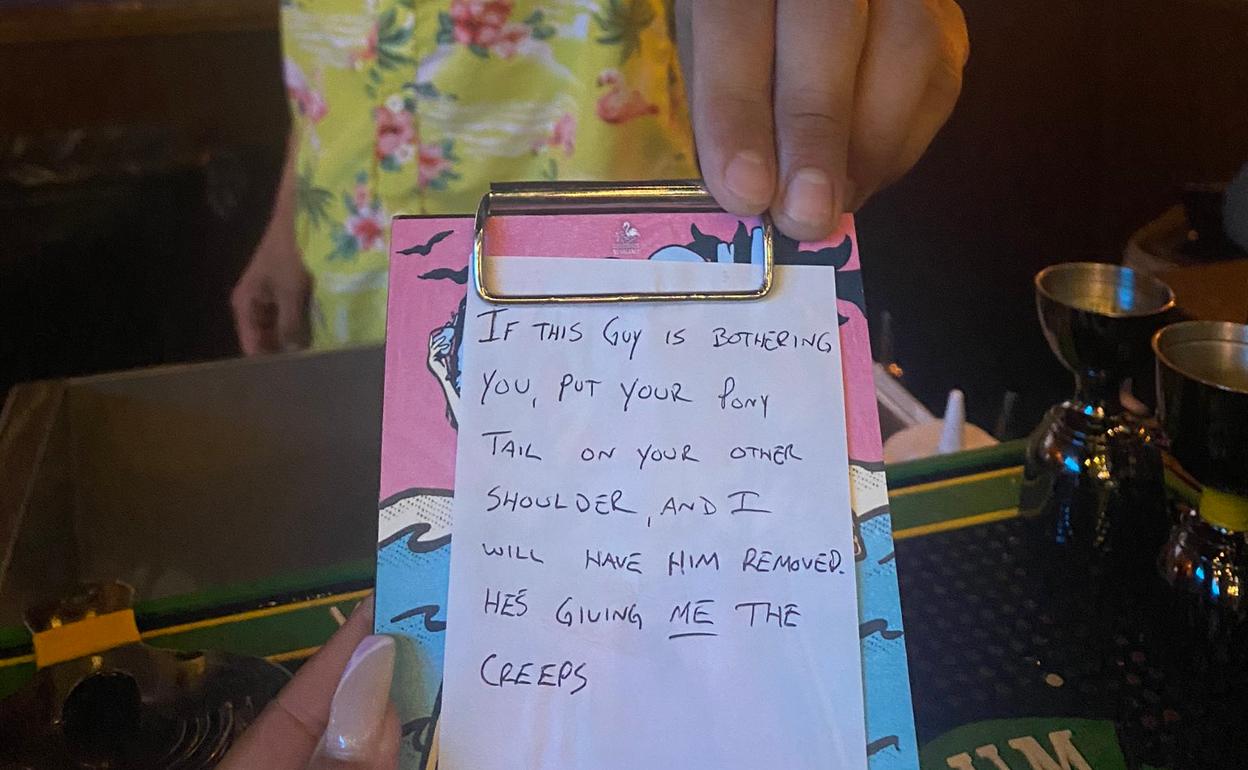 IF THIS GUY IS BOTHERING
YOU, PUT YOUR PONY
TAIL ON YOUR OTHER
SHOULDER, AND I
WILL HAVE HIM REMOVED.
HE'S GIVING ME THE
CREEPS
UM